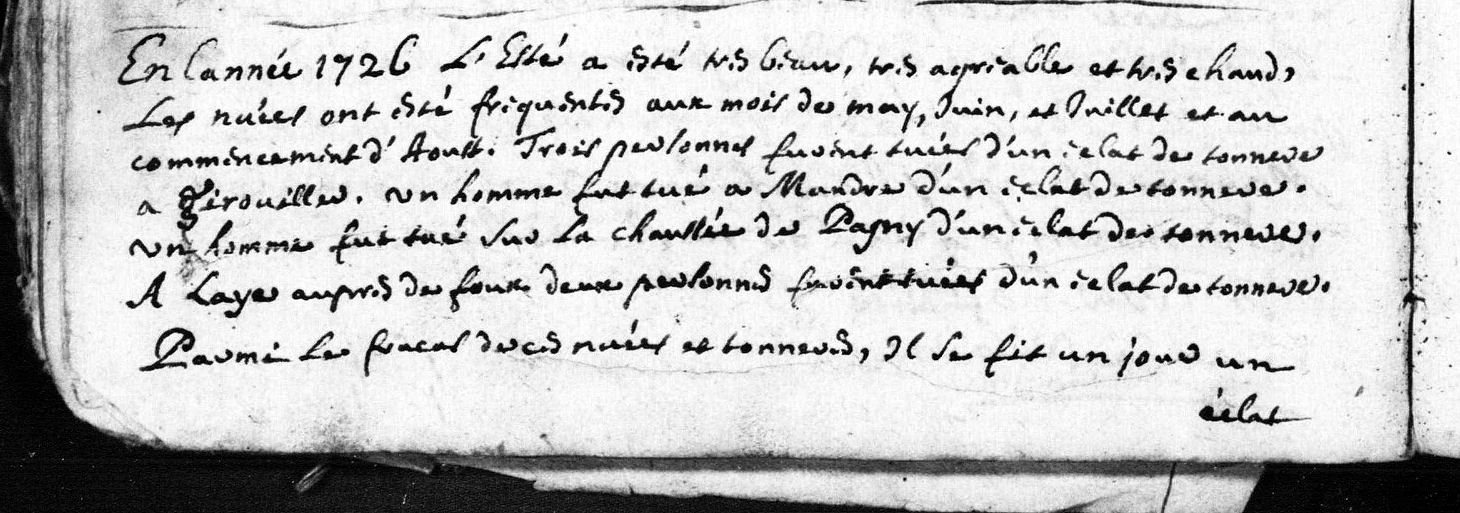 En lannée 1726 L'Esté a esté tres beau, tres agreable et tres chaud,
Les nuées ont esté frequentes aux mois de may, Juin, et Juillet et au
commencement d'Aoust. Trois personnes furent tuées d'un eclat de tonnere
a Gerouville. un homme fut tué a Mandre d'un éclat de tonnere.
un homme fut tué sur La chaussée de Pagny d'un éclat de tonnere.
A Laye aupres de foux deux personnes furent tuées d'un eclat de tonnere.
Parmi Le fracas de ces nuées et tonneres, Il se fit un jour un
éclat